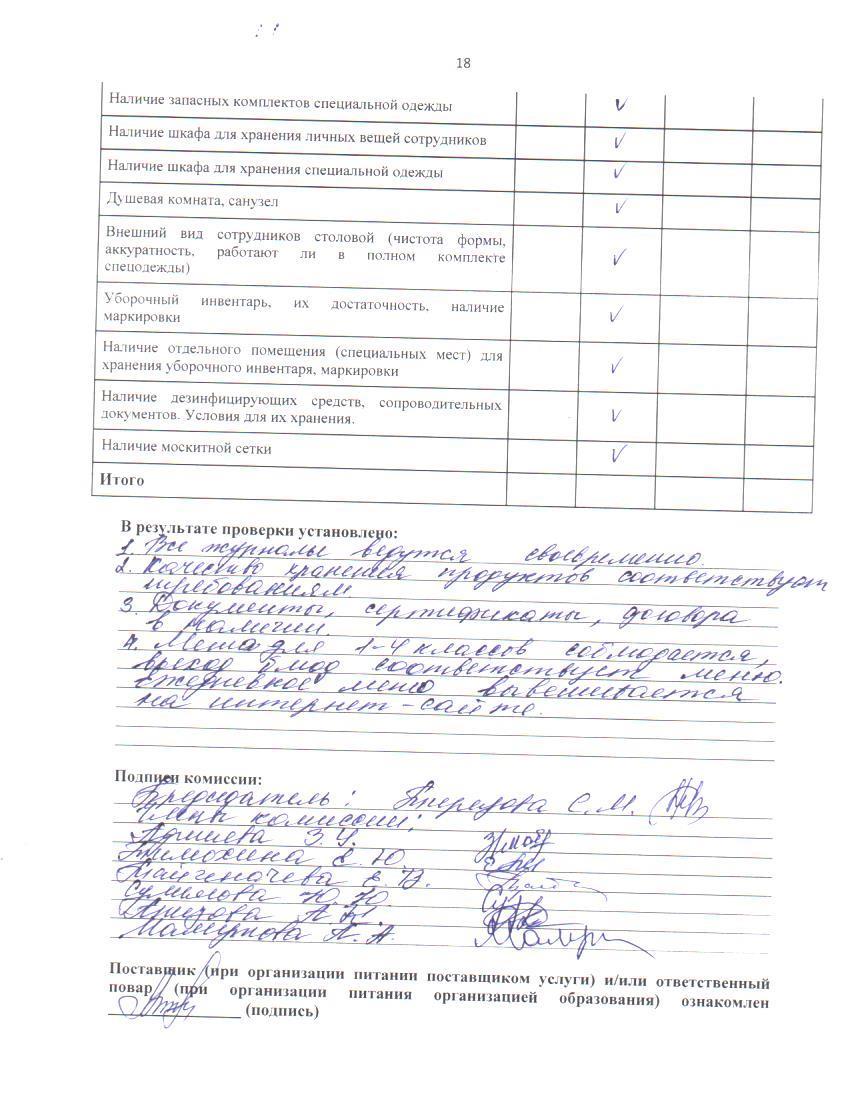 18
Наличие запасных комплектов специальной одежды
Наличие шкафа для хранения личных вещей сотрудников
Наличие шкафа для хранения специальной одежды
Душевая комната, санузел
Внешний вид сотрудников столовой (чистота формы,
аккуратность, работают ли в полном комплекте
спецодежды)
Уборочный инвентарь, их достаточность, наличие
маркировки
Наличие отдельного помещения (специальных мест) для
хранения уборочного инвентаря, маркировки
Наличие дезинфицирующих средств, сопроводительных
документов. Условия для их хранения.
Наличие москитной сетки
Итого
В результате проверки установлено:
1. Все журналы ведутся своевременно.
2. Качество хранения продуктов соответствует
требованиям.
3. Документы, сертификаты, договора
в наличии.
4. Меню для 1-4 классов соблюдается,
выход блюд соответствует меню.
Ежедневное меню вывешивается
на интернет-сайте.
Подписи комиссии:
Председатель: С.М.
Члены комиссии:
З.У.
Тимохина Е.Ю.
Е.В.
Ю.Ю.
А.К.
А.
Поставщик (при организации питании поставщиком услуги) и/или ответственный
повар (при организации питания организацией образования) ознакомлен
(подпись)